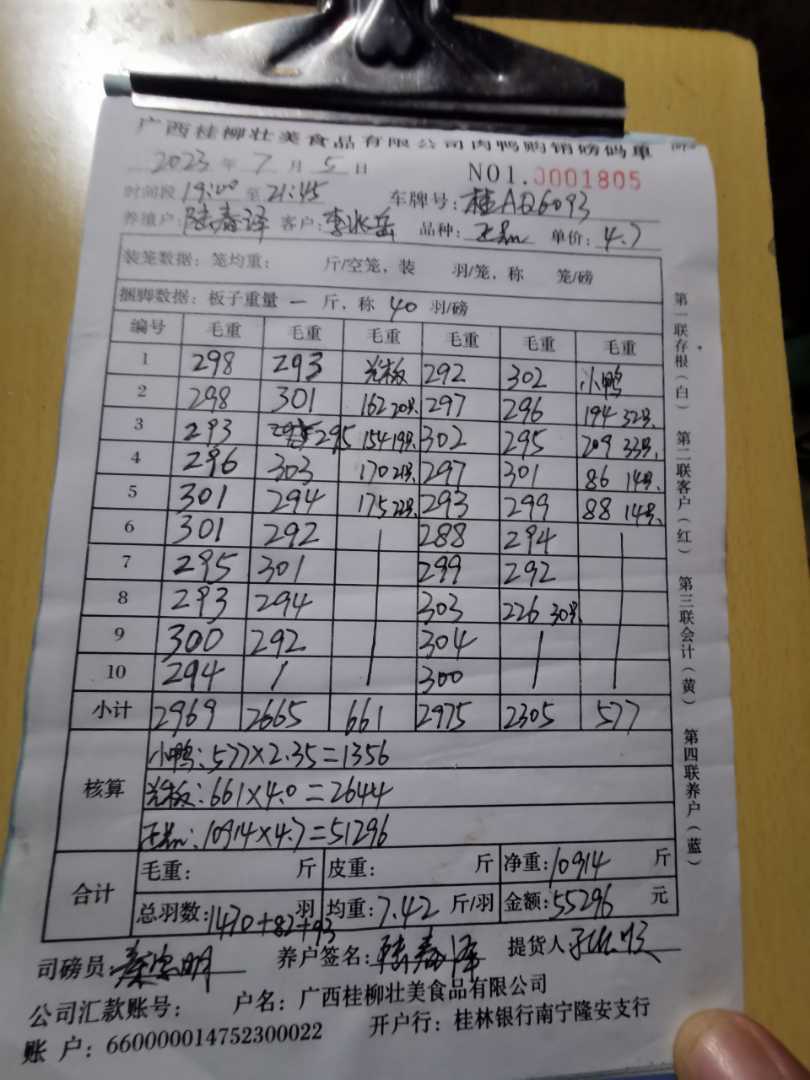 广西桂柳壮美食品有限公司肉鸭购销磅码单
2023 年 7 月 5 日 NO1. 0001805
时间段 19:00 至 21:45 车牌号: 桂AQ6093
养殖户: 陆春泽 客户: 李兆岳 品种: 正品 单价: 4.7
装笼数据: 笼均重: 斤/空笼, 装 羽/笼, 称 笼/磅
捆脚数据: 板子重量 一 斤, 称 40 羽/磅
编号 毛重 毛重 毛重 毛重 毛重 毛重
1 298 293 光板 292 302 小鸭
2 298 301 162 20号 297 296 194 32号
3 293 295 154 19号 302 295 209 33号
4 296 303 170 21号 297 301 86 14号
5 301 294 175 22号 293 299 88 14号
6 301 292 288 294
7 295 301 299 292
8 293 294 303 226 30号
9 300 292 304
10 294 300
小计 2969 2665 661 2975 2305 577
核算
小鸭: 577×2.35=1356
光板: 661×4.0=2644
正品: 10914×4.7=51296
合计 毛重: 斤 皮重: 斤 净重: 10914 斤
总羽数: 1470+82+93 羽 均重: 7.42 斤/羽 金额: 55296 元
司磅员: 养户签名: 陆春泽 提货人
公司汇款账号: 户名: 广西桂柳壮美食品有限公司
账 户: 660000014752300022 开户行: 桂林银行南宁隆安支行
第一联存根(白) 第二联客户(红) 第三联会计(黄) 第四联养户(蓝)